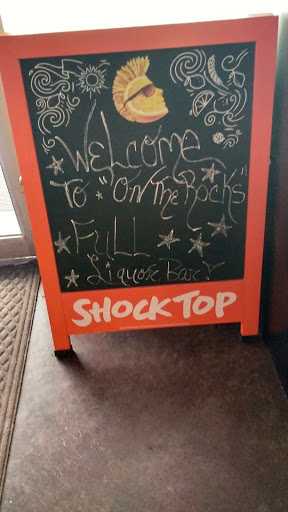 WELCOME
TO "ON THE ROCKS"
FULL
Liquor Bar!
SHOCK TOP